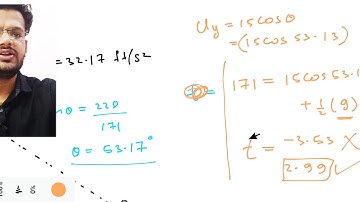 = 32.17 ft/s²
θ = 228 / 171
θ = 53.17°
Uy = 15cosθ
= (15cos53.13)
171 = 15cos53.1
+ ½ (g)
t = -3.53 X
2.99 ✓